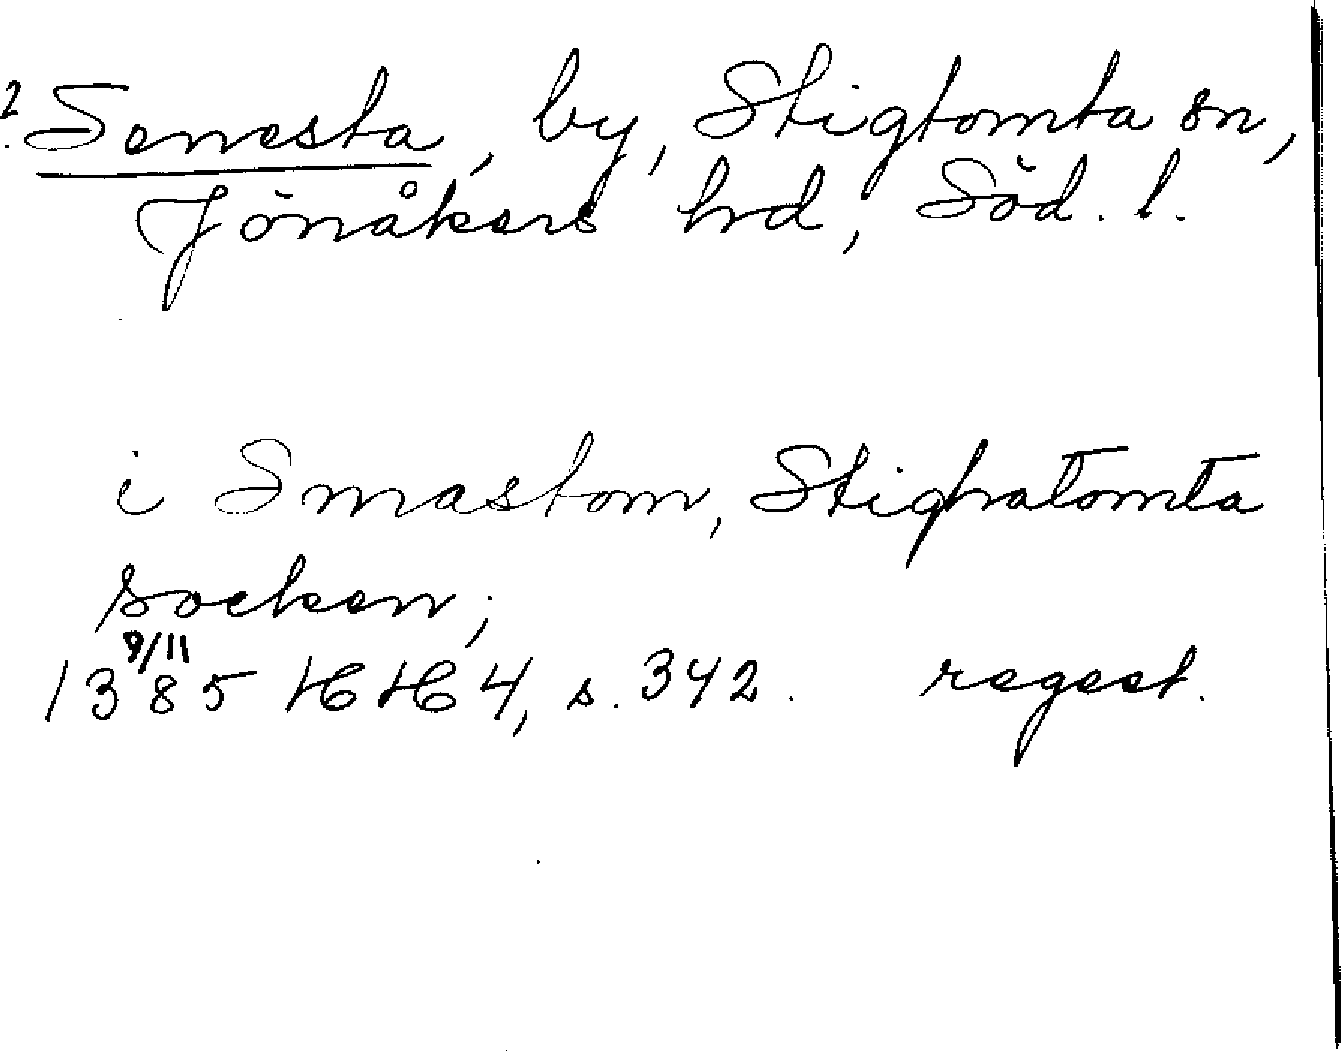 ? Senesta, by, Stigtomta sn,
Jönåkers hd, Söd. l.
i Smastom, Stighatomta
socken;
1385 9/11 HH 4, s. 342. regest.